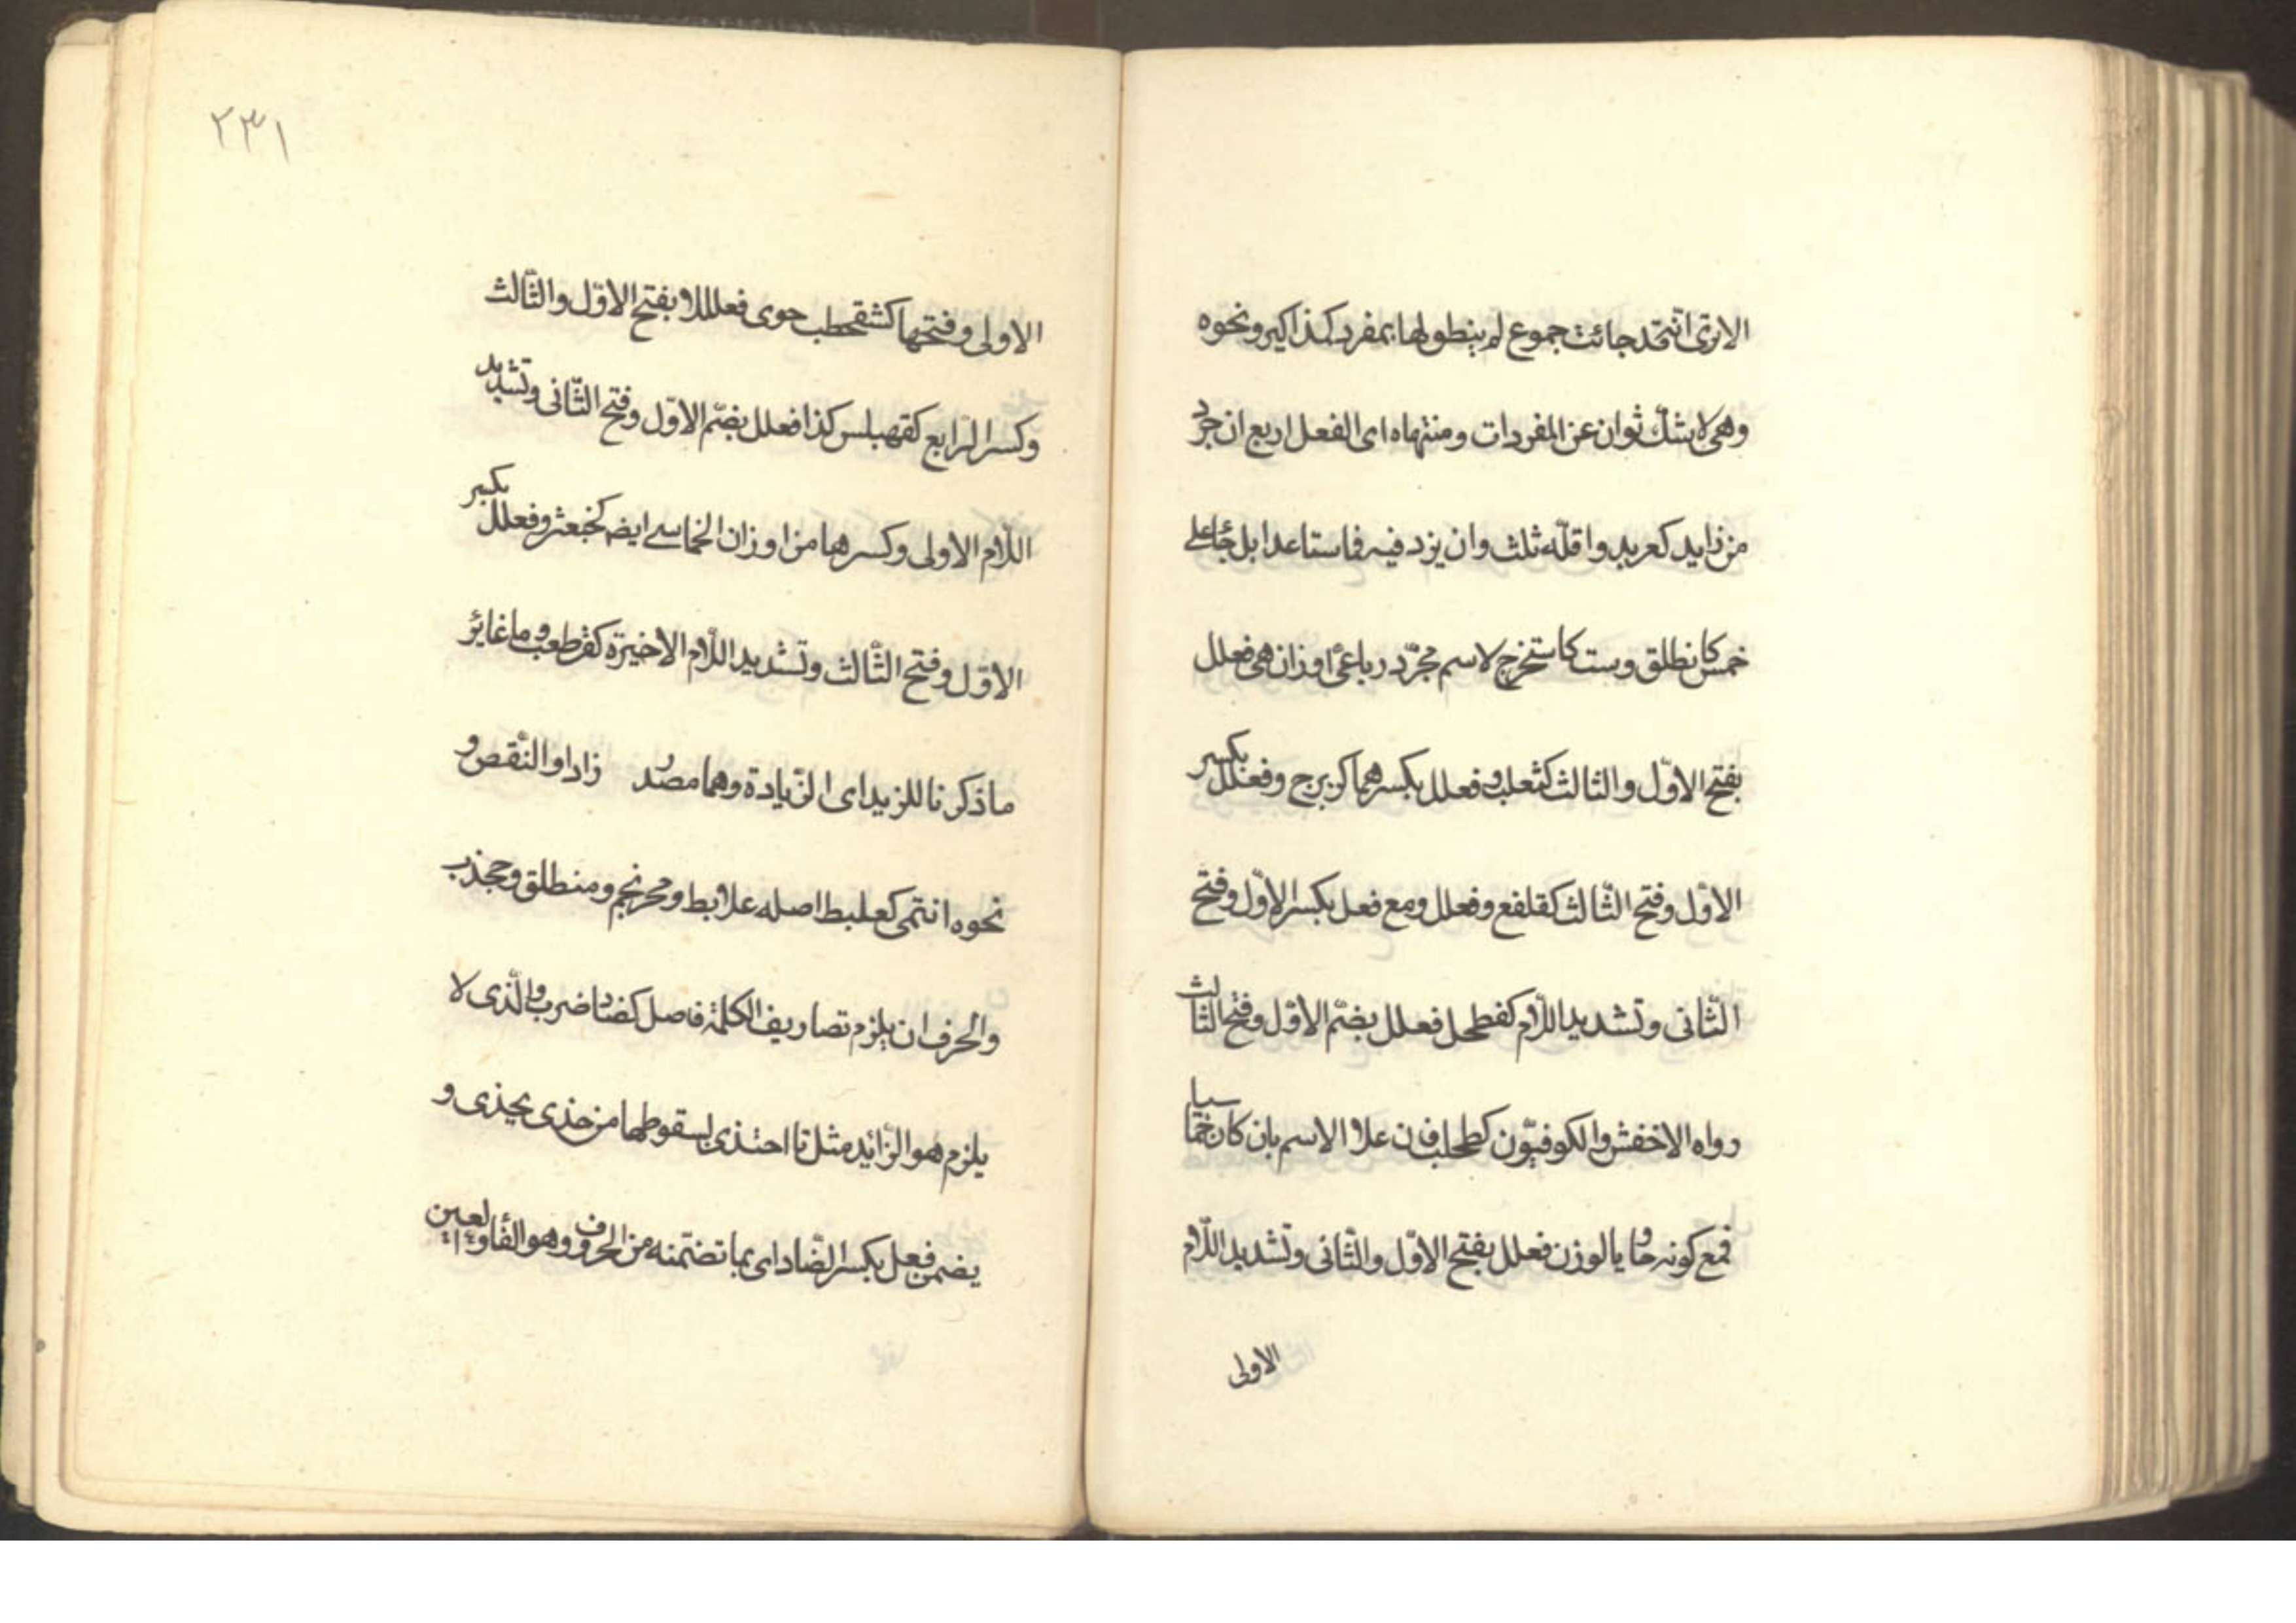 الاترى انّه قد جائت جموع لم ينطولها بمفرد كمذاكير ونحوه
وهى لا بشكّ ثوان عن المفردات ومنتهاه اى الفعل اربع ان جرد
من زايد كعربد واقلّه ثلث وان يزد فيه فاستاعدا بل جٔا على
خمس كانطلق وست كاستخرج لاسم مجرّد رباعىٔ اوزان هى فعلل
بفتح الاوّل والثالث كثعلب وفعلل بكسرهما كزبرج وفعلل بكسر
الاوّل وفتح الثّالث كقلفع وفعلل ومع فعل بكسر الاوّل وفتح
الثّانى وتشديد اللّام كفطحل فعلل بضمّ الاوّل وفتح الثالث
رواه الاخفش والكوفيّون كطحلب فان علا الاسم بان كان خماسيا
فمع كونه حاويا لوزن فعلل بفتح الاوّل والثّانى وتشديد اللّام
الاولى
٢٣١
الاولى وفتحها كشقحطب حوى فعلللا بفتح الاوّل والثّالث
وكسر الرّابع كقهبلس كذا فعلل بضمّ الاوّل وفتح الثّانى وتشديد
اللّام الاولى وكسرها من اوزان الخماسے ايضه كخبعثر وفعلل بكسر
الاوّل وفتح الثّالث وتشديد اللّام الاخيرة كقرطعب وما غاير
ما ذكرنا للزيد اى الزّيادة وهما مصدر زاد او النّقص و
نحوه انتمى كعلبط اصله علابط ومحرنجم ومنطلق وجخذب
والحرف ان يلزم تصاريف الكلمة فاصل كضاد ضرب والّذى لا
يلزم هو الزّائد مثل تا احتذى لسقوطها من حذى يحذى و
يضمن فعل بكسر الضّاد اى بما تضمّنه من الحروف وهو الفأ والعين